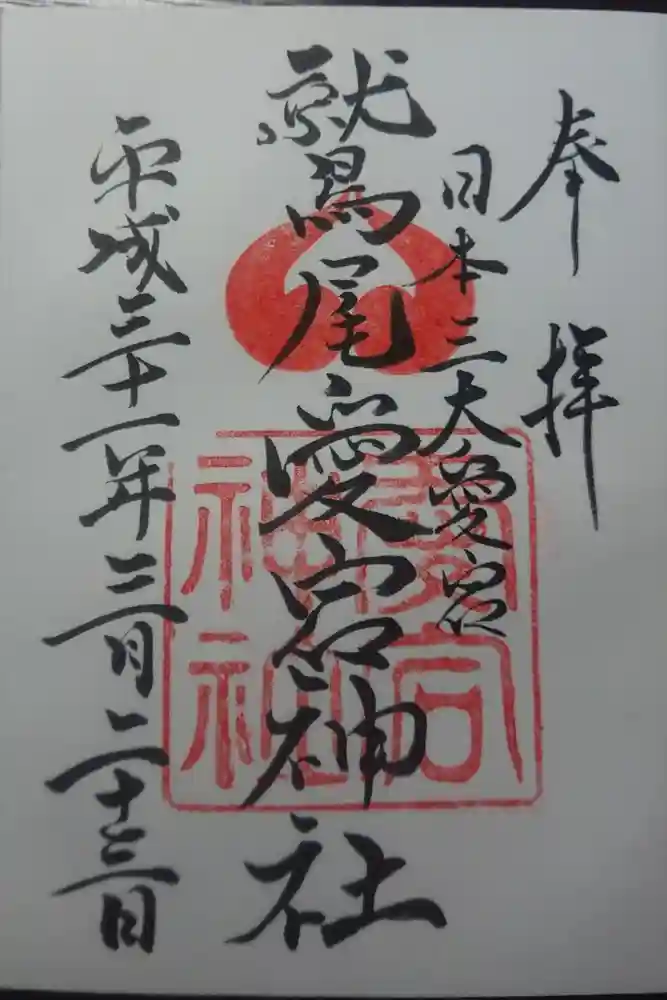 奉拝
日本三大愛宕
鷲尾愛宕神社
愛宕神社
平成三十一年三月二十三日